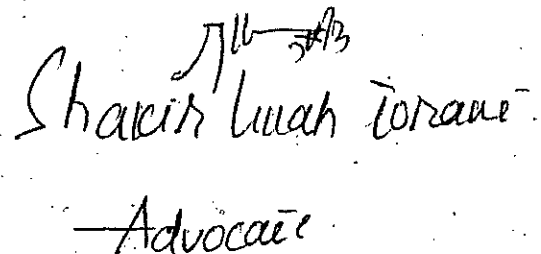 Shakir Ullah Torani
Advocate